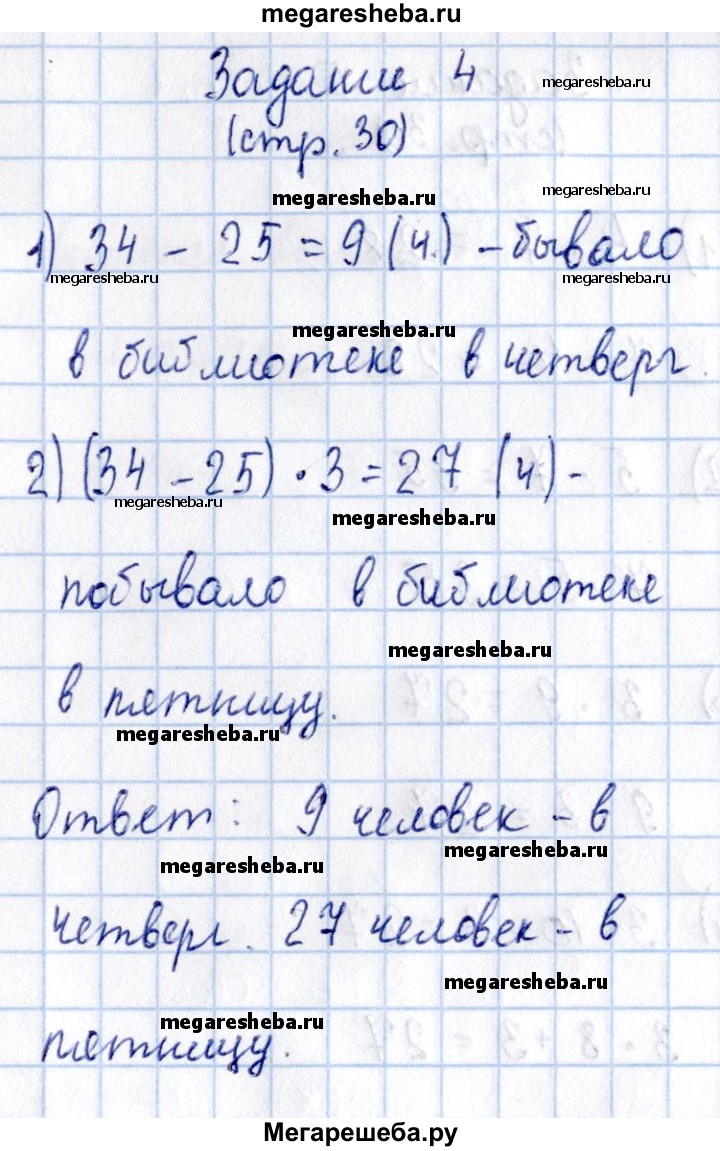 megaresheba.ru
Задание 4
megaresheba.ru
(стр. 30)
megaresheba.ru
megaresheba.ru
1) 34 - 25 = 9 (ч.) - бывало
megaresheba.ru
megaresheba.ru
megaresheba.ru
в библиотеке в четверг.
2) (34 - 25) · 3 = 27 (ч) -
megaresheba.ru
megaresheba.ru
побывало в библиотеке
megaresheba.ru
в пятницу.
megaresheba.ru
Ответ: 9 человек - в
megaresheba.ru
megaresheba.ru
четверг. 27 человек - в
megaresheba.ru
megaresheba.ru
пятницу.
Мегарешеба.ру